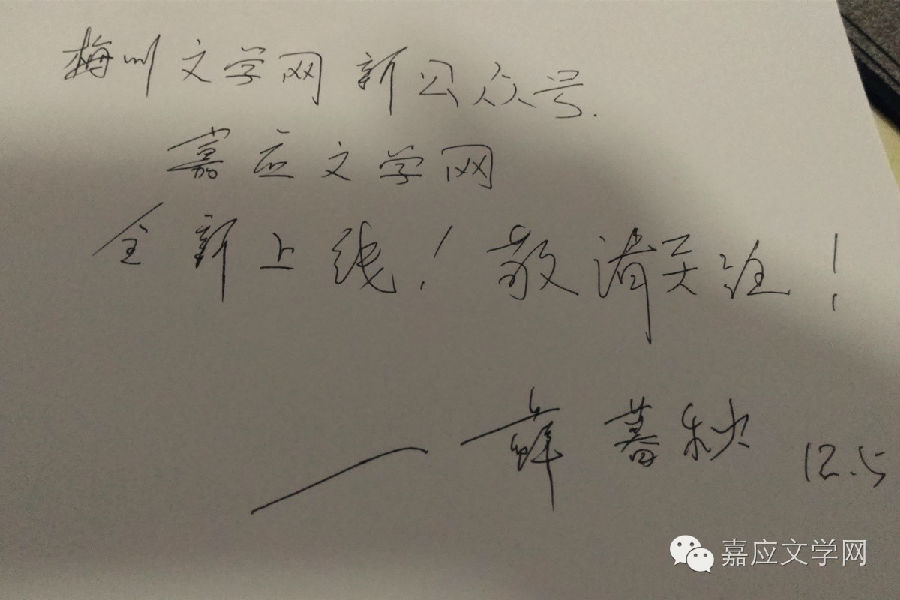 梅州文学网新公众号.
嘉应文学网
全新上线！敬请关注！
——薛暮秋 12.5
嘉应文学网